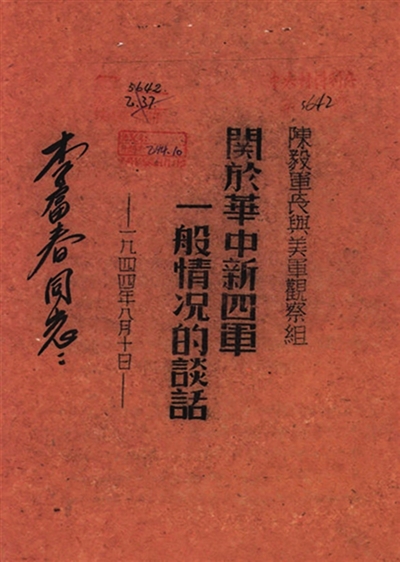 陳毅軍長與美軍觀察組
關於華中新四軍
一般情况的談話
——一九四四年八月十日——
李富春同志：
5642
2.37
5642